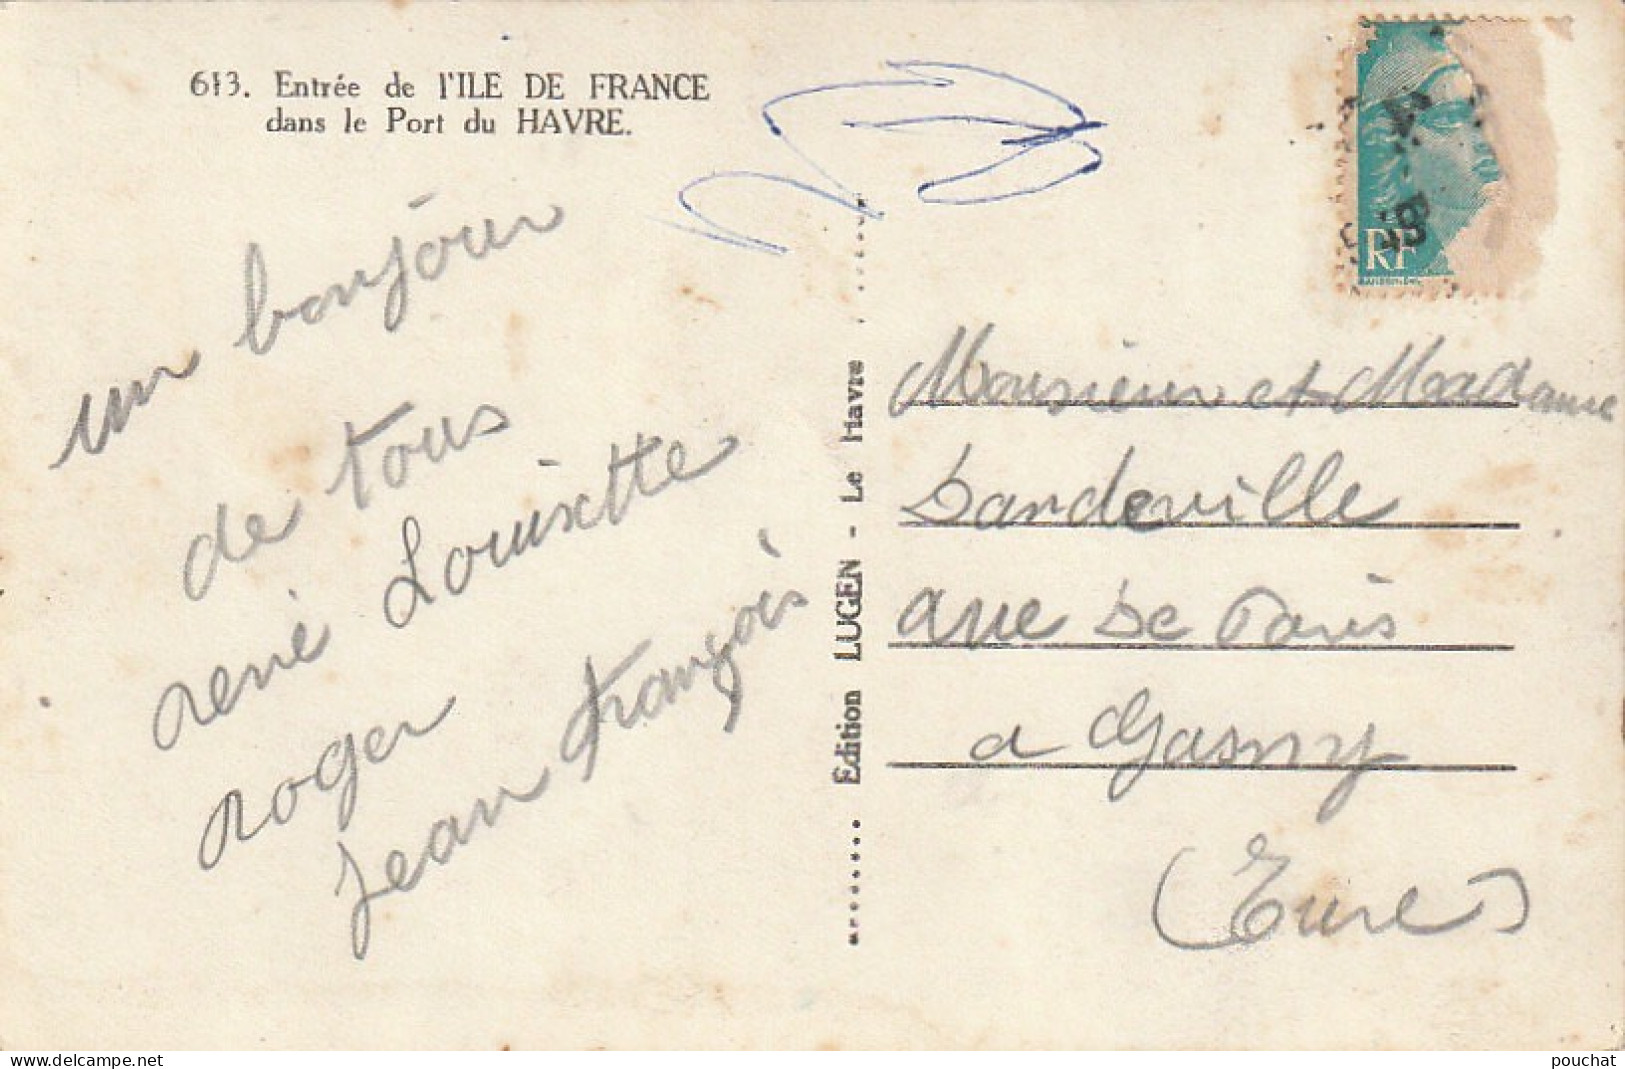 613. Entrée de l'ILE DE FRANCE
dans le Port du HAVRE.
un bonjour
de tous
rené Louisette
roger
Jean François
Edition LUGEN - Le Havre
Monsieur et Madame
Dandeville
aue de Paris
a Gasny
(Eure)
RF
www.delcampe.net
pouchat